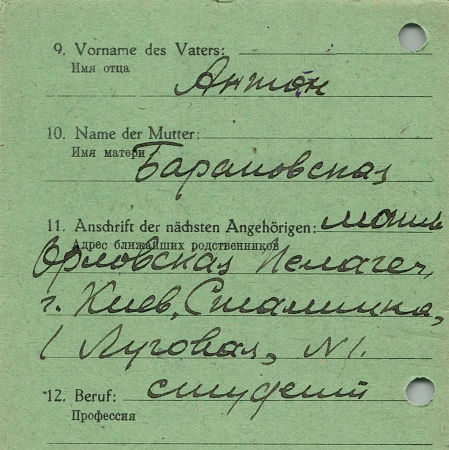 9. Vorname des Vaters:
Имя отца
Антон
10. Name der Mutter:
Имя матери Барановская
11. Anschrift der nächsten Angehörigen: мать
Адрес ближайших родственников
Орловская Пелагея,
г. Киев, Сталинка,
1 Луговая, N1.
12. Beruf: студент
Профессия